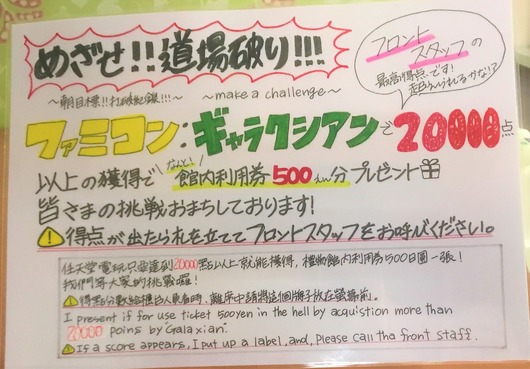 めざせ!!道場破り!!!
フロント
スタッフの
最高得点です!
超えられるかな!?
～make a challenge～
ファミコン:ギャラクシアンで20000点
以上の獲得で なんと! 館内利用券500えん分プレゼント
皆さまの挑戦おまちしております!
得点が出たら札を立ててフロントスタッフをお呼びください。
任天堂電玩只要達到20000點以上就能獲得，館內利用券500日圓一張!
我們等大家的挑戰喔!
I present if for use ticket 500yen in the hell by acquistion more than
20000 poins by Galaxian.
If a score appears, I put up a label, and, Please call tha front staff.